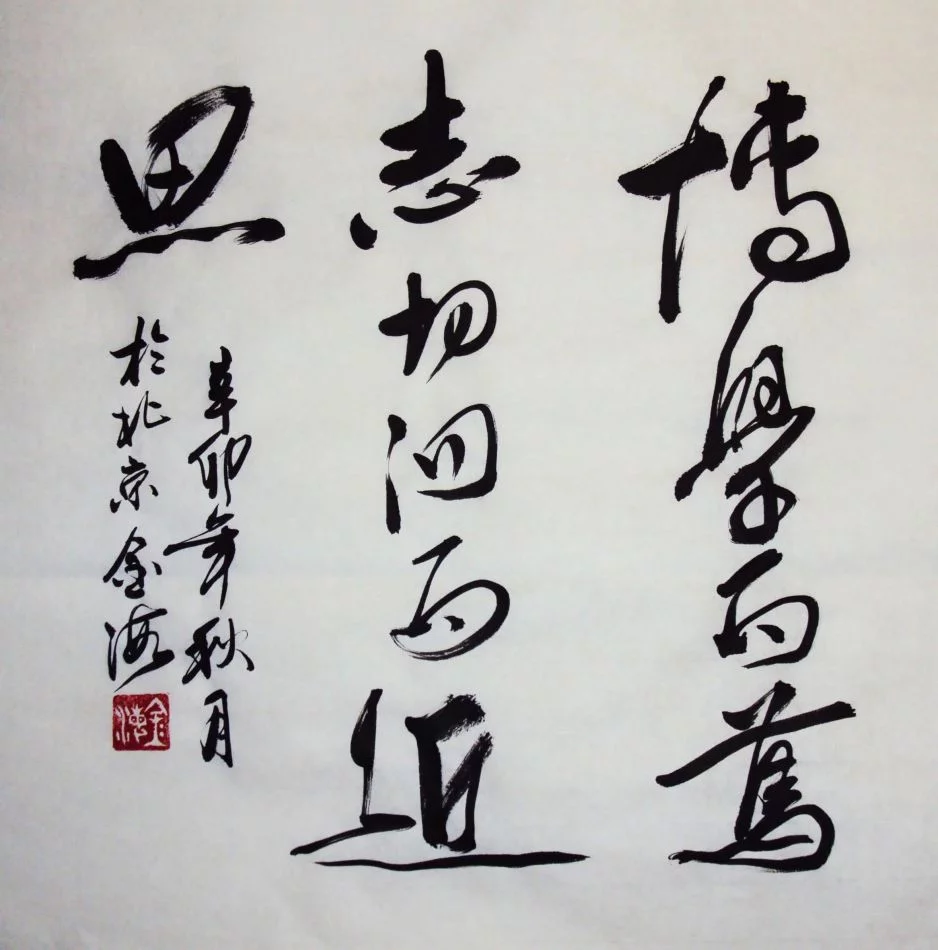 博學而篤
志切问而近
思
辛卯年秋月
於北京金海
金海